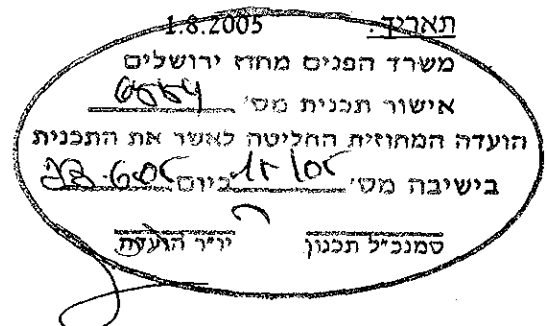 תאריך: 1.8.2005
משרד הפנים מחוז ירושלים
אישור תכנית מס'
הועדה המחוזית החליטה לאשר את התכנית
בישיבה מס' ביום
סמנכ"ל תכנון יו"ר הועדה